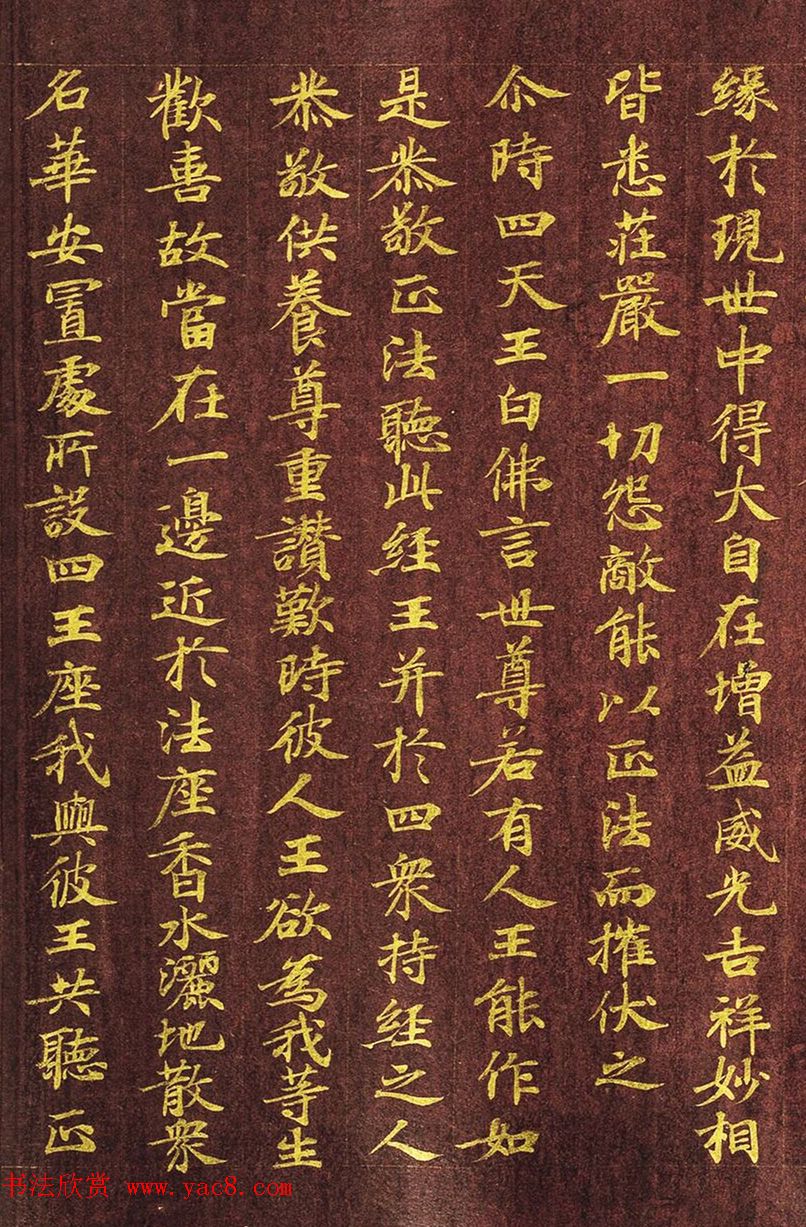 緣於現世中得大自在增益威光吉祥妙相
皆悉莊嚴一切怨敵能以正法而摧伏之
尒時四天王白佛言世尊若有人王能作如
是恭敬正法聽此經王并於四衆持經之人
恭敬供養尊重讚歎時彼人王欲為我等生
歡喜故當在一邊近於法座香水灑地散衆
名華安置處所設四王座我與彼王共聽正
书法欣赏 www.yac8.com